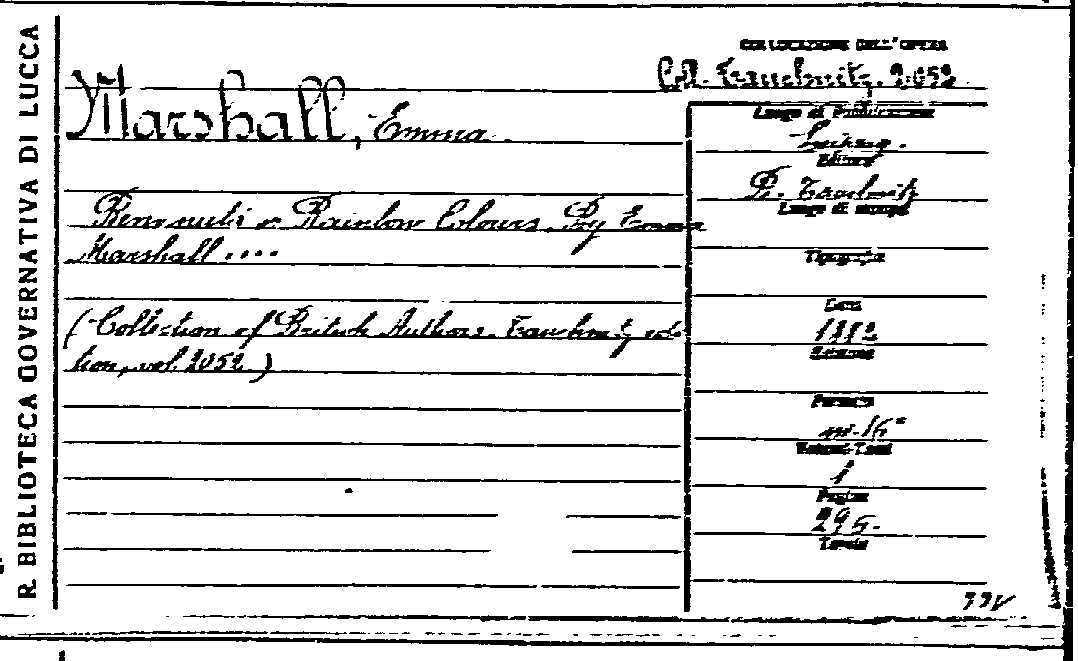 R. BIBLIOTECA GOVERNATIVA DI LUCCA
COLLOCAZIONE DELL'OPERA
Coll. Tauchnitz. 2052
Marshall, Emma
Benvenuta or Rainbow Colours. By Emma
Marshall ....
(Collection of British Authors. Tauchnitz edi-
tion, vol. 2052)
Luogo di Pubblicazione
Editore
B. Tauchnitz
Luogo di stampa
Tipografia
Data
1882
Edizione
Formato
in-16°
Volumi-Tomi
1
Pagine
295.
Tavole